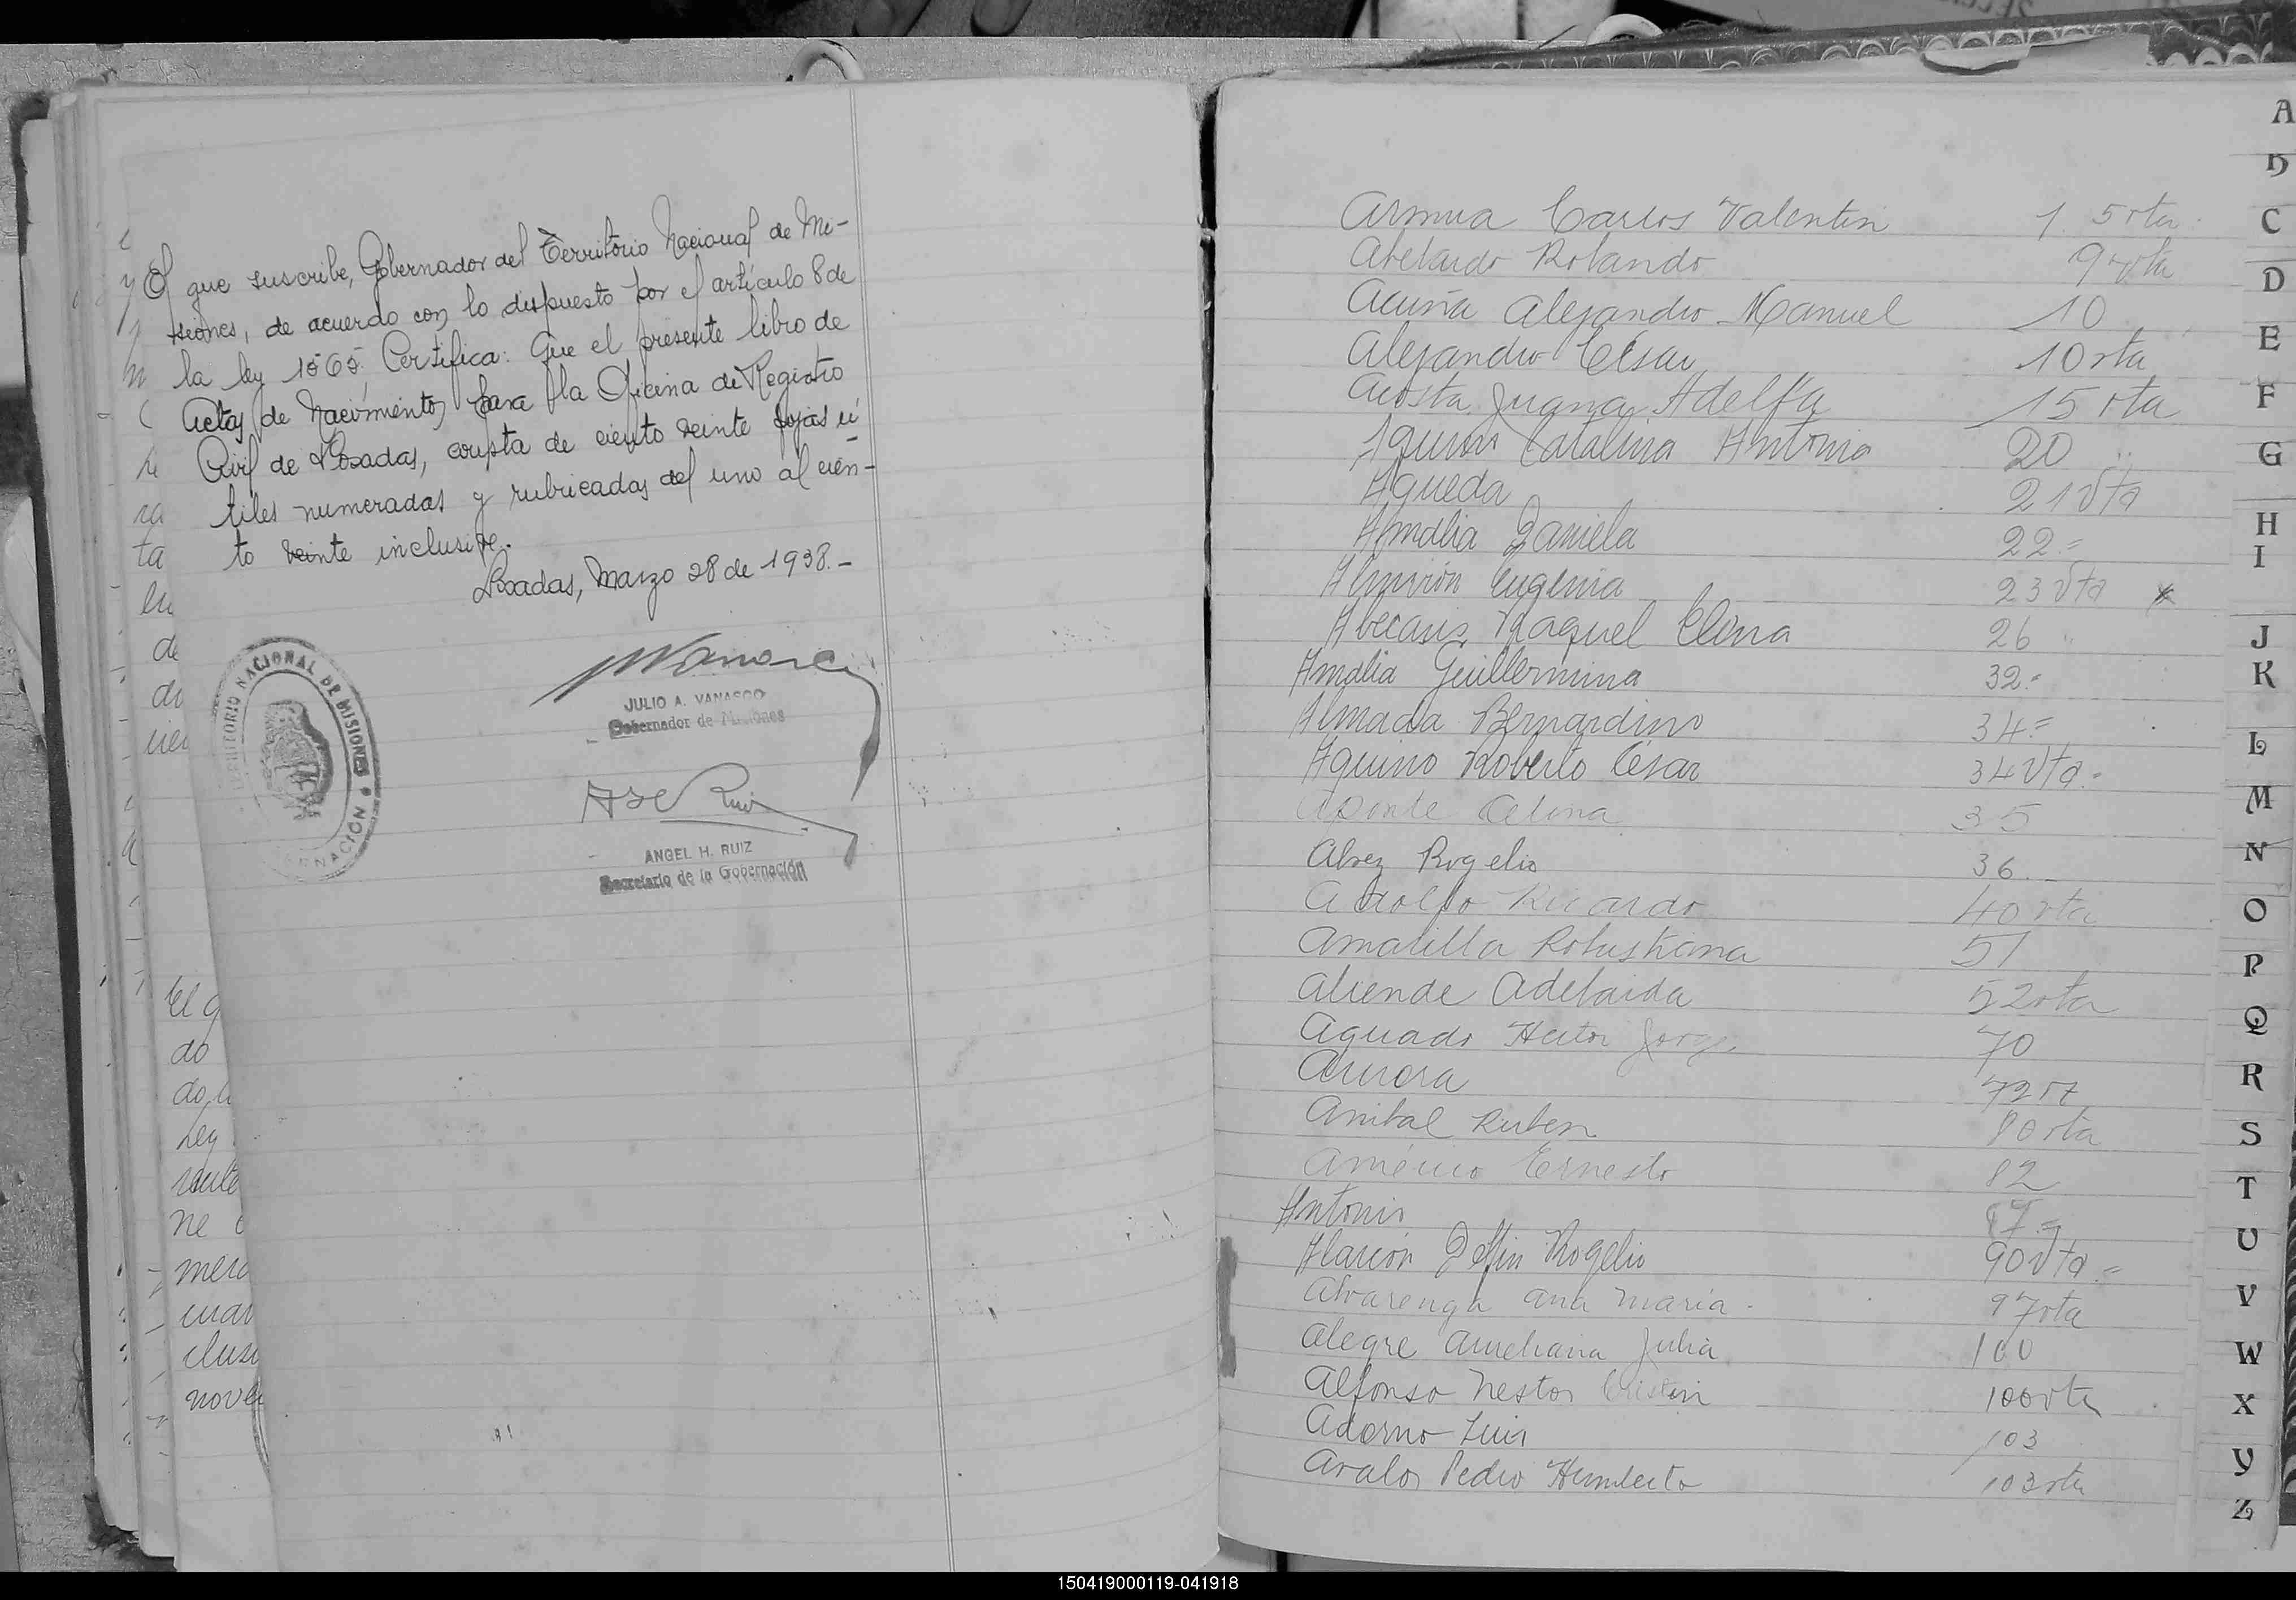 El que suscribe, Gobernador del Territorio Nacional de Mi-
siones, de acuerdo con lo dispuesto por el artículo 8 de
la ley 1565, Certifica: Que el presente libro de
Actas de Nacimientos para la Oficina de Registro
Civil de Posadas, consta de ciento veinte fojas ú
tiles numeradas y rubricadas del uno al cien-
to veinte inclusive.
Posadas, Marzo 28 de 1938.-
TERRITORIO NACIONAL DE MISIONES
GOBERNACIÓN
JULIO A. VANASCO
Gobernador de Misiones
ANGEL H. RUIZ
Secretario de la Gobernación
El q
do
Ley
ne
mero
clusi
novie
Carlos Valentin 1 5 vta
Abelardo Rolando 9 vta
Acuña Alejandro Manuel 10
Alejandro César 10 vta
Acosta Juana Adelfa 15 vta
Aquino Catalina Antonia 20 "
Agueda 21 vta
Amalia Daniela 22 =
Almirón Eugenia 23 vta x
Abecasis Raquel Elena 26 "
Amalia Guillermina 32.-
Almada Bernardino 34 =
Aquino Roberto César 34 vta.-
Aponte Celina 35
Alvez Rogelio 36.
Adolfo Ricardo 40 vta
Amarilla Robustiana 51
Aliende Adelaida 52 vta
Aguado Hector Jorge 70
Aurora 72 vt
Anibal Ruben 80 vta
Américo Ernesto 82
Antonio 87 =
Alarcón Delfin Rogelio 90 vta =
Alvarenga Ana Maria - 97 vta
Alegre Aureliana Julia 100
Alfonso Nestor Cristin 100 vta
Adorno Luis 103
Avalos Pedro Humberto 103 vta
A
B
C
D
E
F
G
H
I
J
K
L
M
N
O
P
Q
R
S
T
U
V
W
X
Y
Z
150419000119-041918